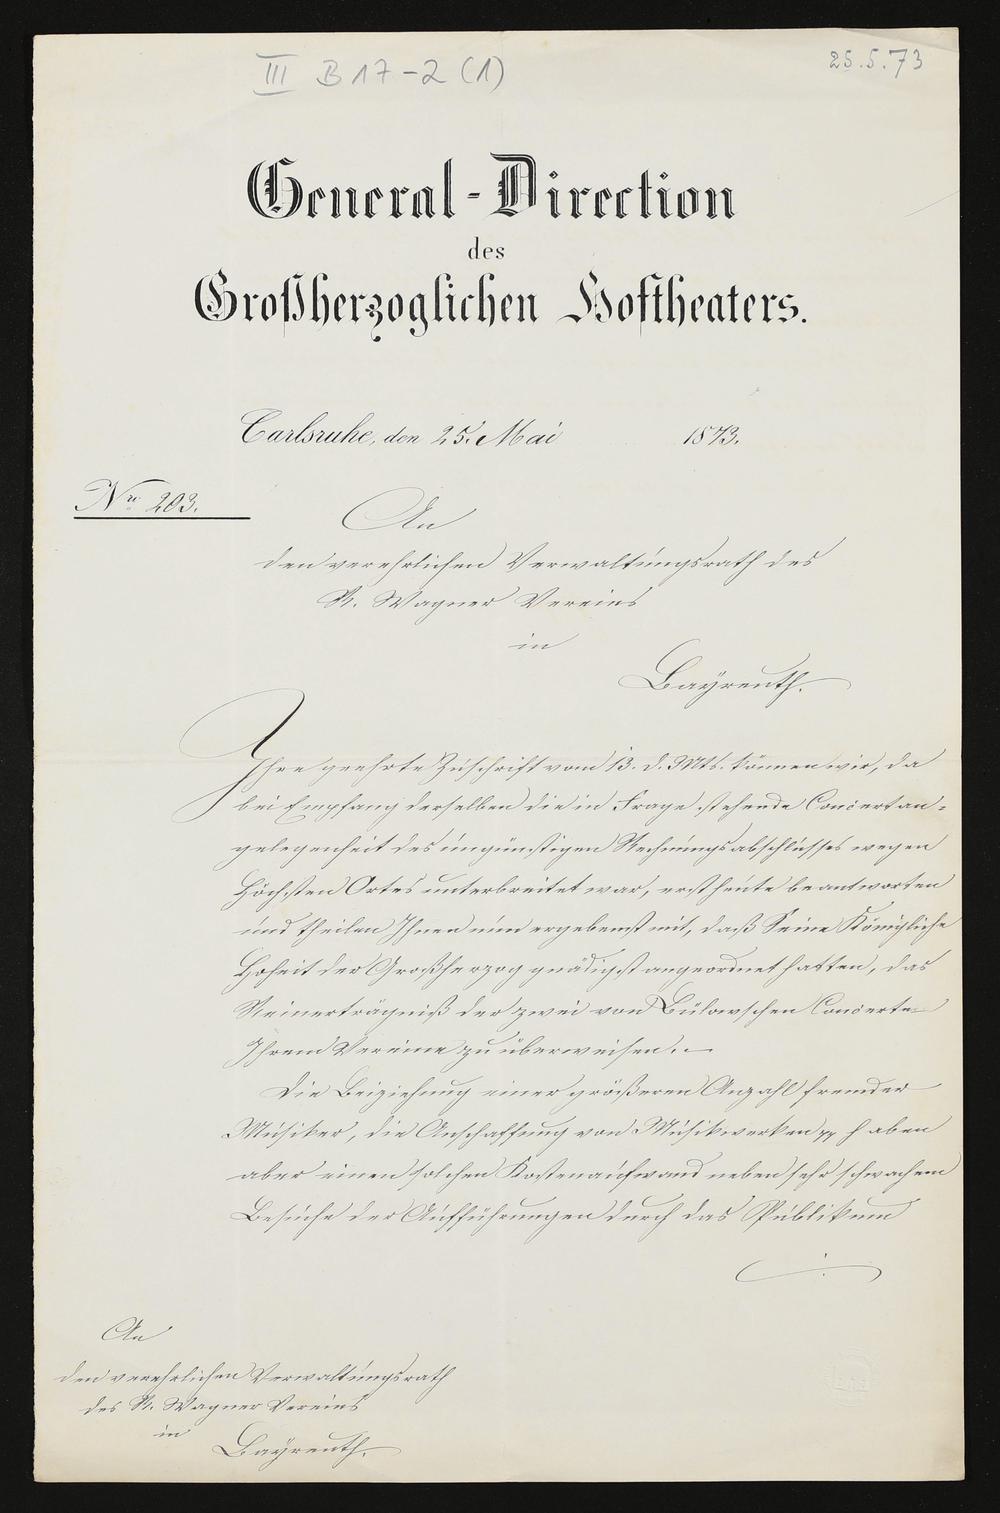 III B 17-2 (1)
25.5.73
General-Direction
des
Großherzoglichen Hoftheaters.
Carlsruhe, den 25. Mai 1873.
Nro. 203.
An
den verehrlichen Verwaltungsrath des
R. Wagner Vereins
in
Bayreuth.
Ihre geehrte Zuschrift vom 13. d. Mts. können wir, da
bei Empfang derselben die in Frage stehende Concertan-
gelegenheit des ungünstigen Rechnungsabschlusses wegen
Höchsten Ortes unterbreitet war, erst heute beantworten
und theilen Ihnen nun ergebenst mit, daß Seine Königliche
Hoheit der Großherzog gnädigst angeordnet hatten, das
Reinerträgniß der zwei von Bülowschen Concerte
Ihrem Vereine zu überweisen. –
Die Beiziehung einer größeren Anzahl fremder
Musiker, die Anschaffung von Musikwerken pp haben
aber einen solchen Kostenaufwand neben sehr schwachem
Besuche der Aufführungen durch das Publikum
An
den verehrlichen Verwaltungsrath
des R. Wagner Vereins
in
Bayreuth.